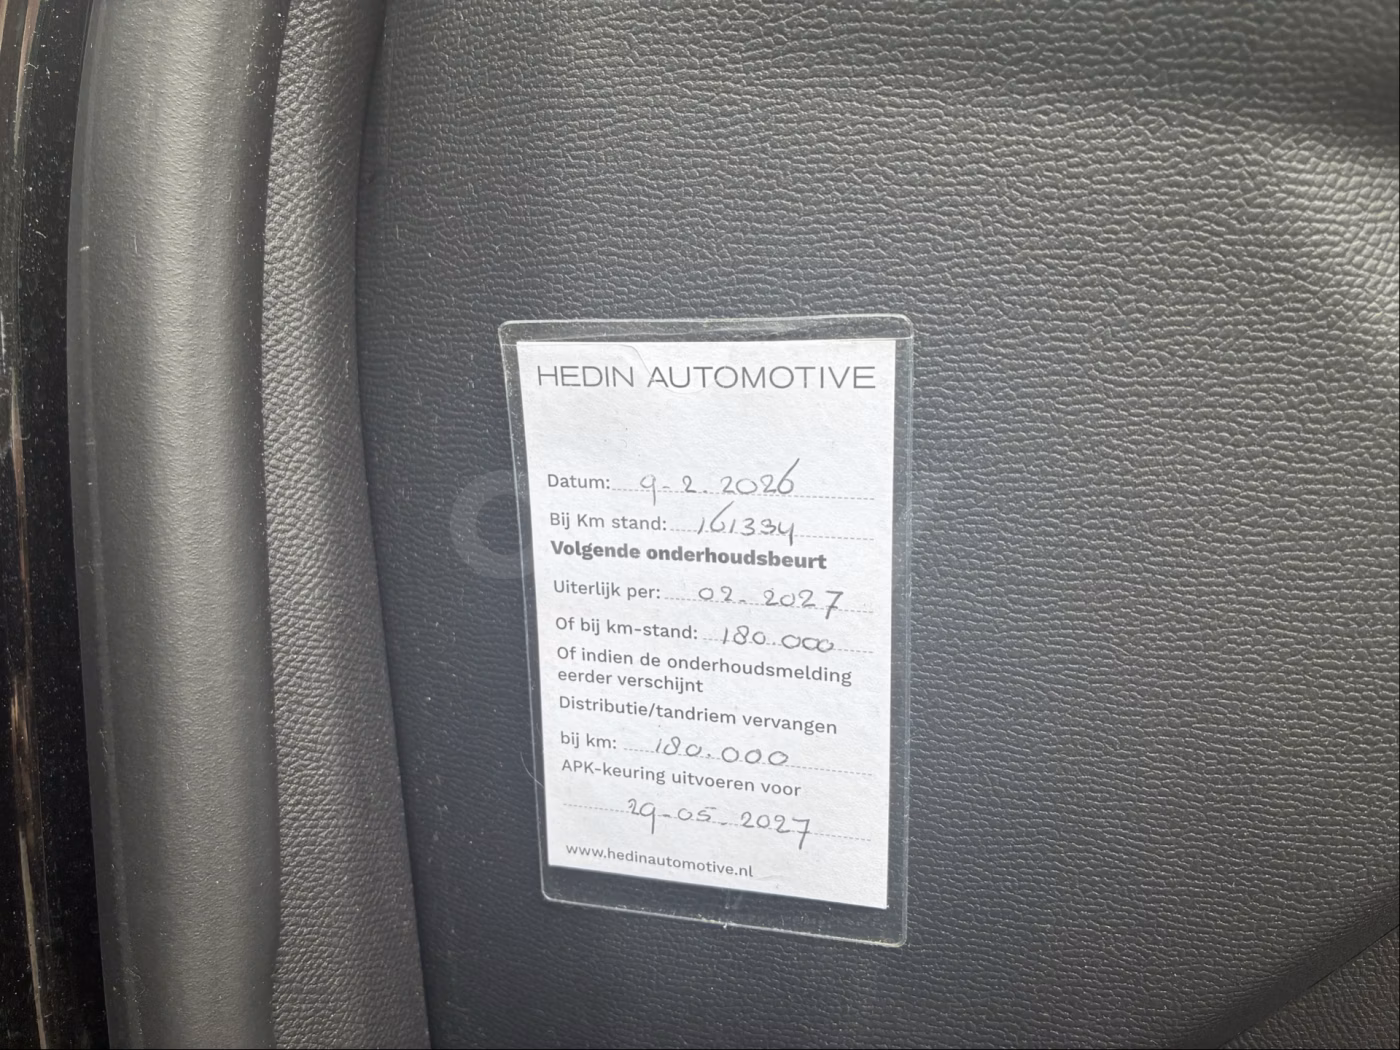 HEDIN AUTOMOTIVE
Datum: 9-2.2026
Bij Km stand: 161334
Volgende onderhoudsbeurt
Uiterlijk per: 02-2027
Of bij km-stand: 180.000
Of indien de onderhoudsmelding
eerder verschijnt
Distributie/tandriem vervangen
bij km: 180.000
APK-keuring uitvoeren voor
29-05-2027
www.hedinautomotive.nl